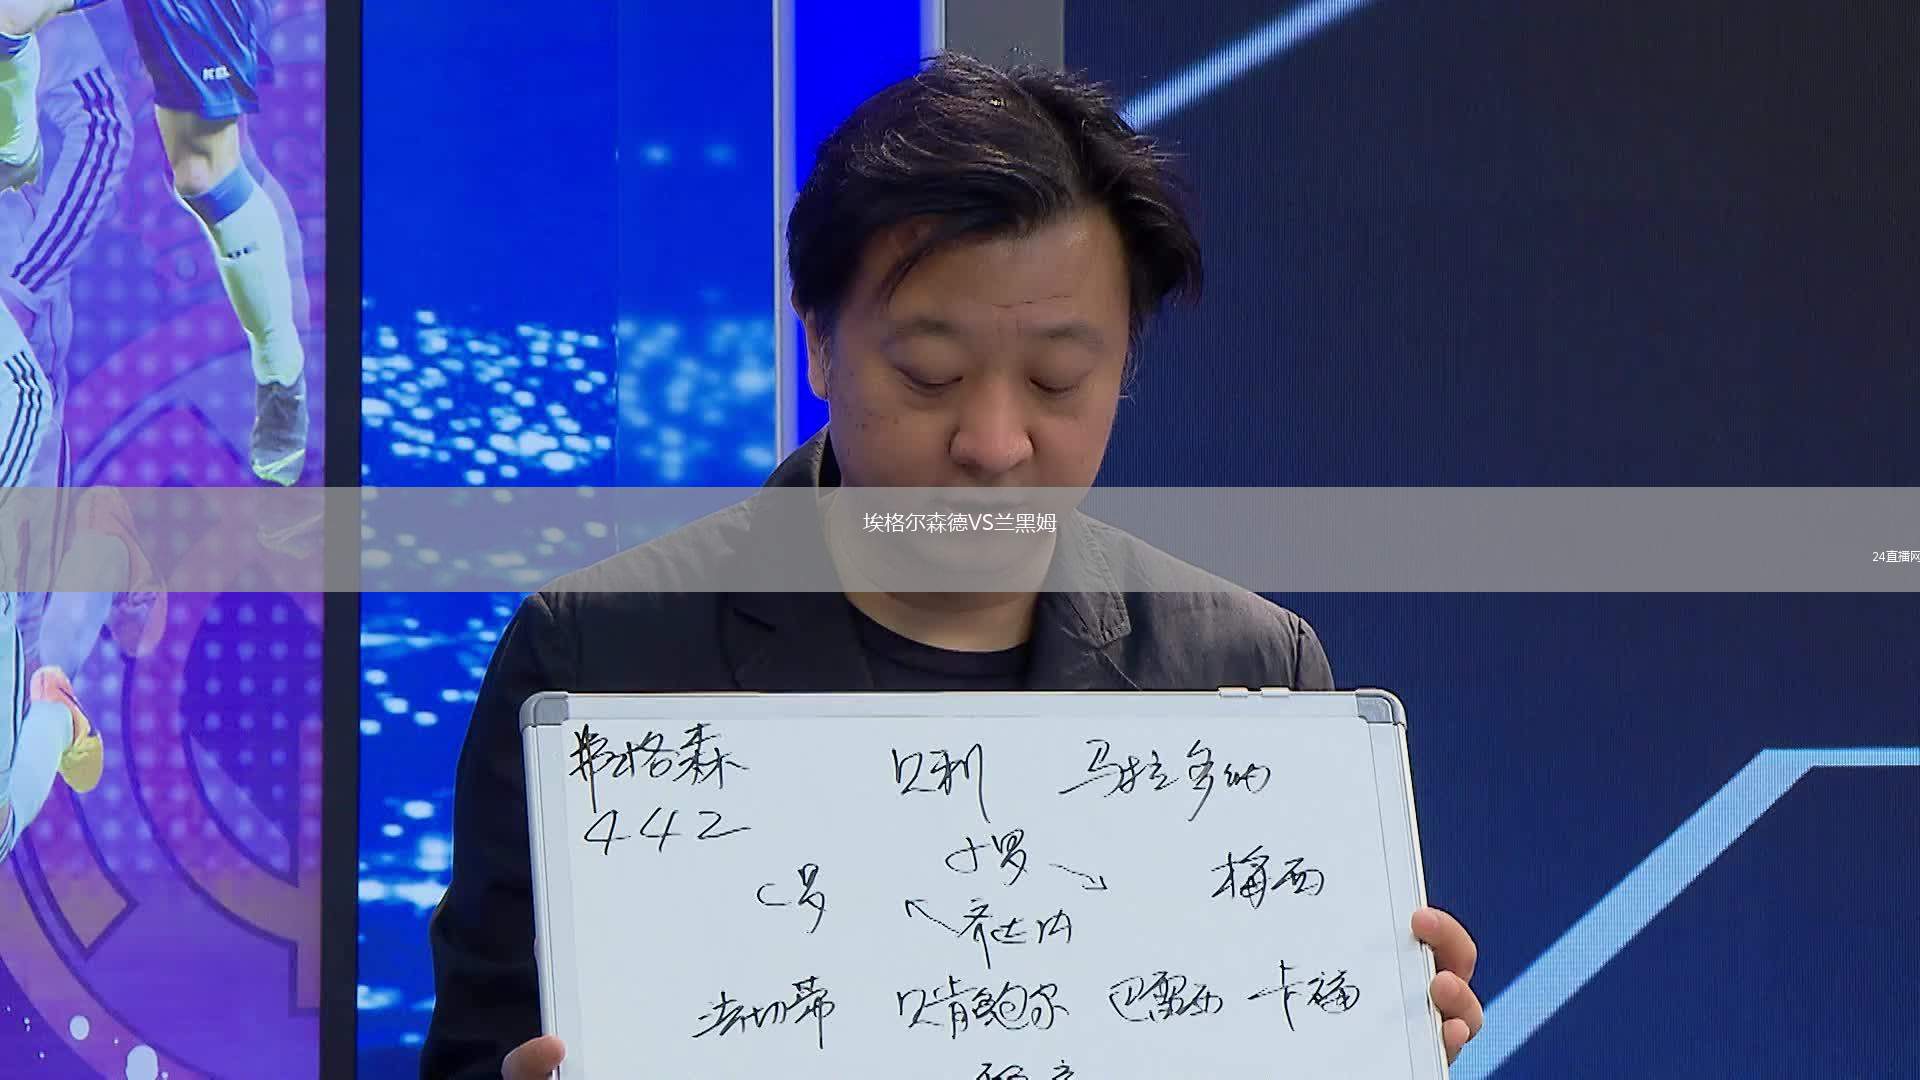 埃格尔森德VS兰黑姆
24直播网
弗格森 贝利 马拉多纳
442
小罗
C罗 梅西
齐达内
法切蒂 贝肯鲍尔 巴雷西 卡福